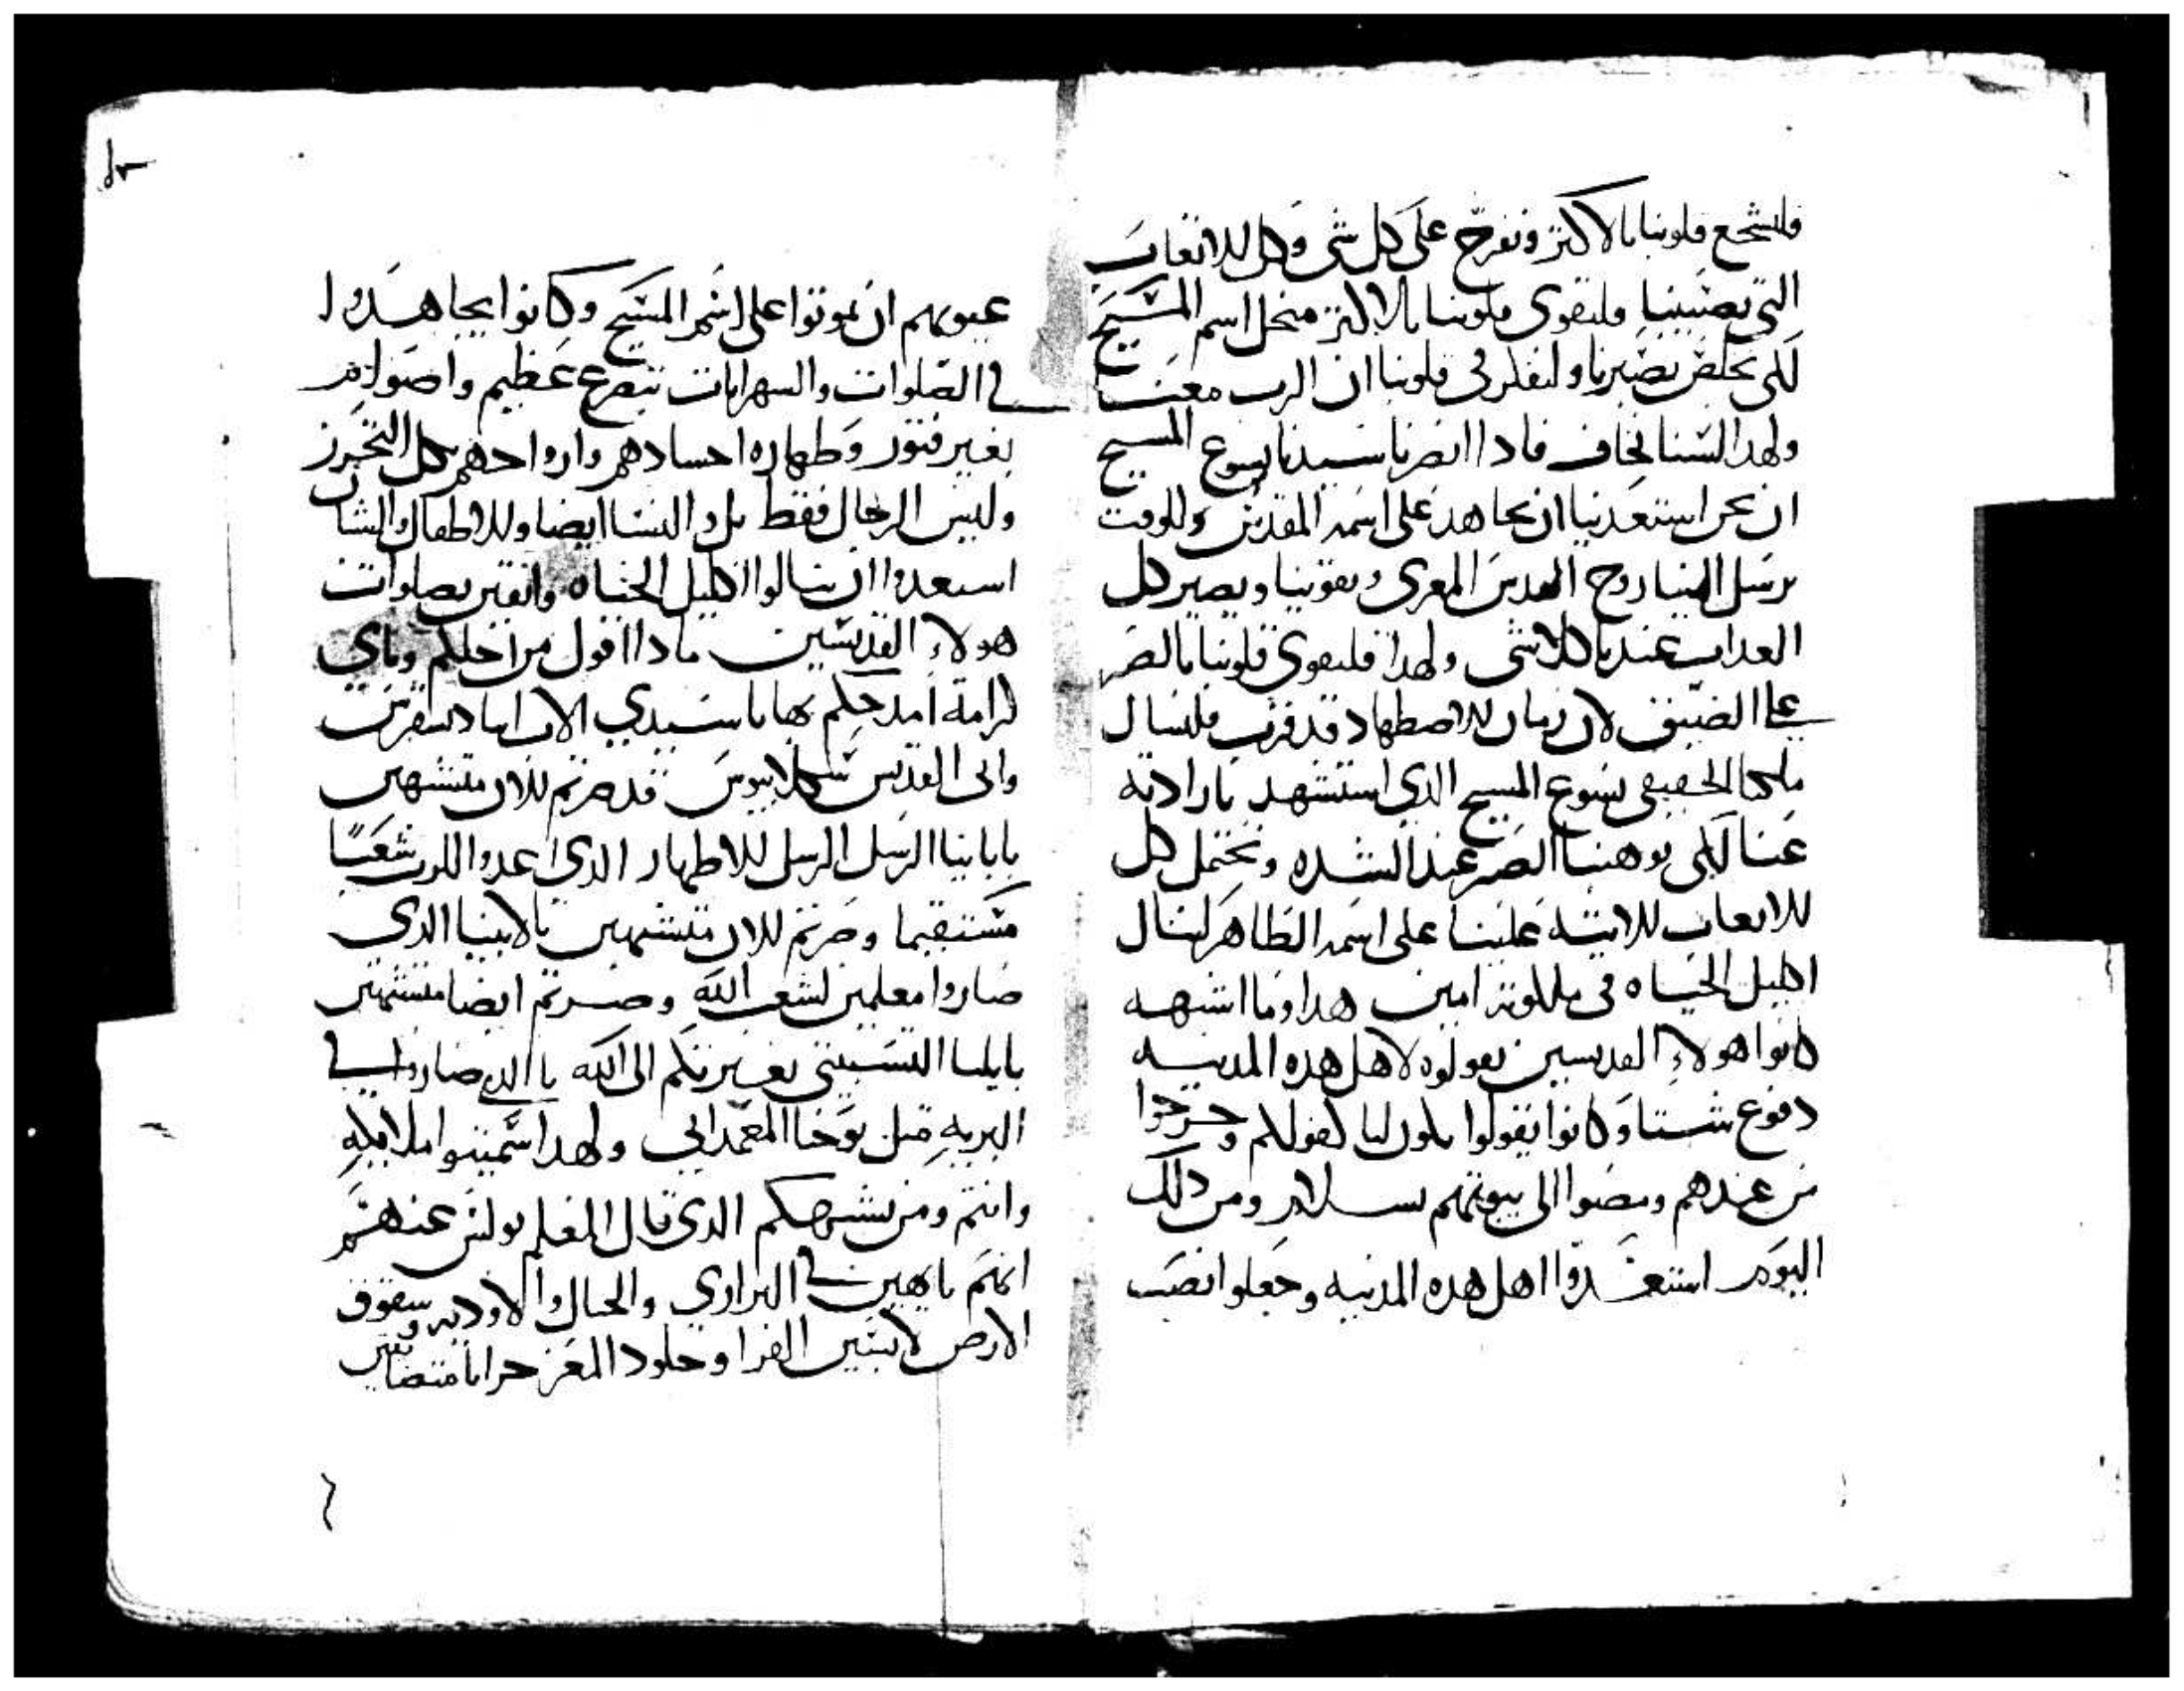 فلنشجع قلوبنا بالاكتر ونفرح على كل شى وكل الاتعاب
التى تصيبنا ولنقوى قلوبنا بالاكتر منجل اسم المسيح
لكى نخلص بصبرنا ولنفكر فى قلوبنا ان الرب معنا
ولهدا لسنا نخاف فادا انضرنا سيدنا يسوع المسيح
ان نحن استعدينا ان نجاهد على اسمه المقدس وللوقت
يرسل الينا روح القدس المعزى ويقوينا ويصير كل
العداب عندنا كلا شى ولهدا فلنقوى قلوبنا بالصبر
على الضيق لان زمان الاضطهاد قد قرب فلنسال
ملكنا الحقيقى يسوع المسيح الدي استشهد بارادته
عنا لكى يوهبنا الصبر عند الشده ونحتمل كل
الاتعاب الاتيه علينا على اسمه الطاهر لننال
اكليل الحياه فى ملكوته امين هدا وما اشبهه
كانوا هولاء القديسين يقولوه لاهل هده المدينه
دفوع شتا وكانوا يقولوا يكون لنا كقولكم وخرجوا
من عندهم ومضوا الى بيوتهم بسلام ومن دلك
اليوم استعدوا اهل هده المدينه وجعلوا نصب
عيونهم ان يموتوا على اسم المسيح وكانوا يجاهدوا
فى الصلوات والسهرانات بتضرع عظيم واصوام
بغير فتور وطهاره اجسادهم وارواحهم بكل التحرز
وليس الرجال فقط بل والنسا ايضا والاطفال والشبان
استعدوا ان ينالوا اكليل الحياه واتقين بصلوات
هولاء القديسين مادا اقول من اجلكم وباي
كرامه امدحكم بها يا سيدي الاب انبا ديسقورس
واخى القديس سكلابيوس قد صرتم الان متشبهين
باباينا الرسل الرسل الاطهار الدى اعدوا للرب شعبا
مستقيما وصرتم الان متشبهين بالانبيا الدي
صاروا معلمين لشعب الله وصرتم ايضا متشبهين
بايليا التسبيتى بغيرتكم الى الله يا الدى صاروا فى
البريه مثل يوحنا المعمدانى ولهدا سميتوا ملايكه
وانتم ومن يشبهكم الدى قال المعلم بولس عنهم
انهم تايهين فى البرارى والجبال والاوديه وسقوف
الارض لابسين الفرا وجلود المعز حزانا متضايقين